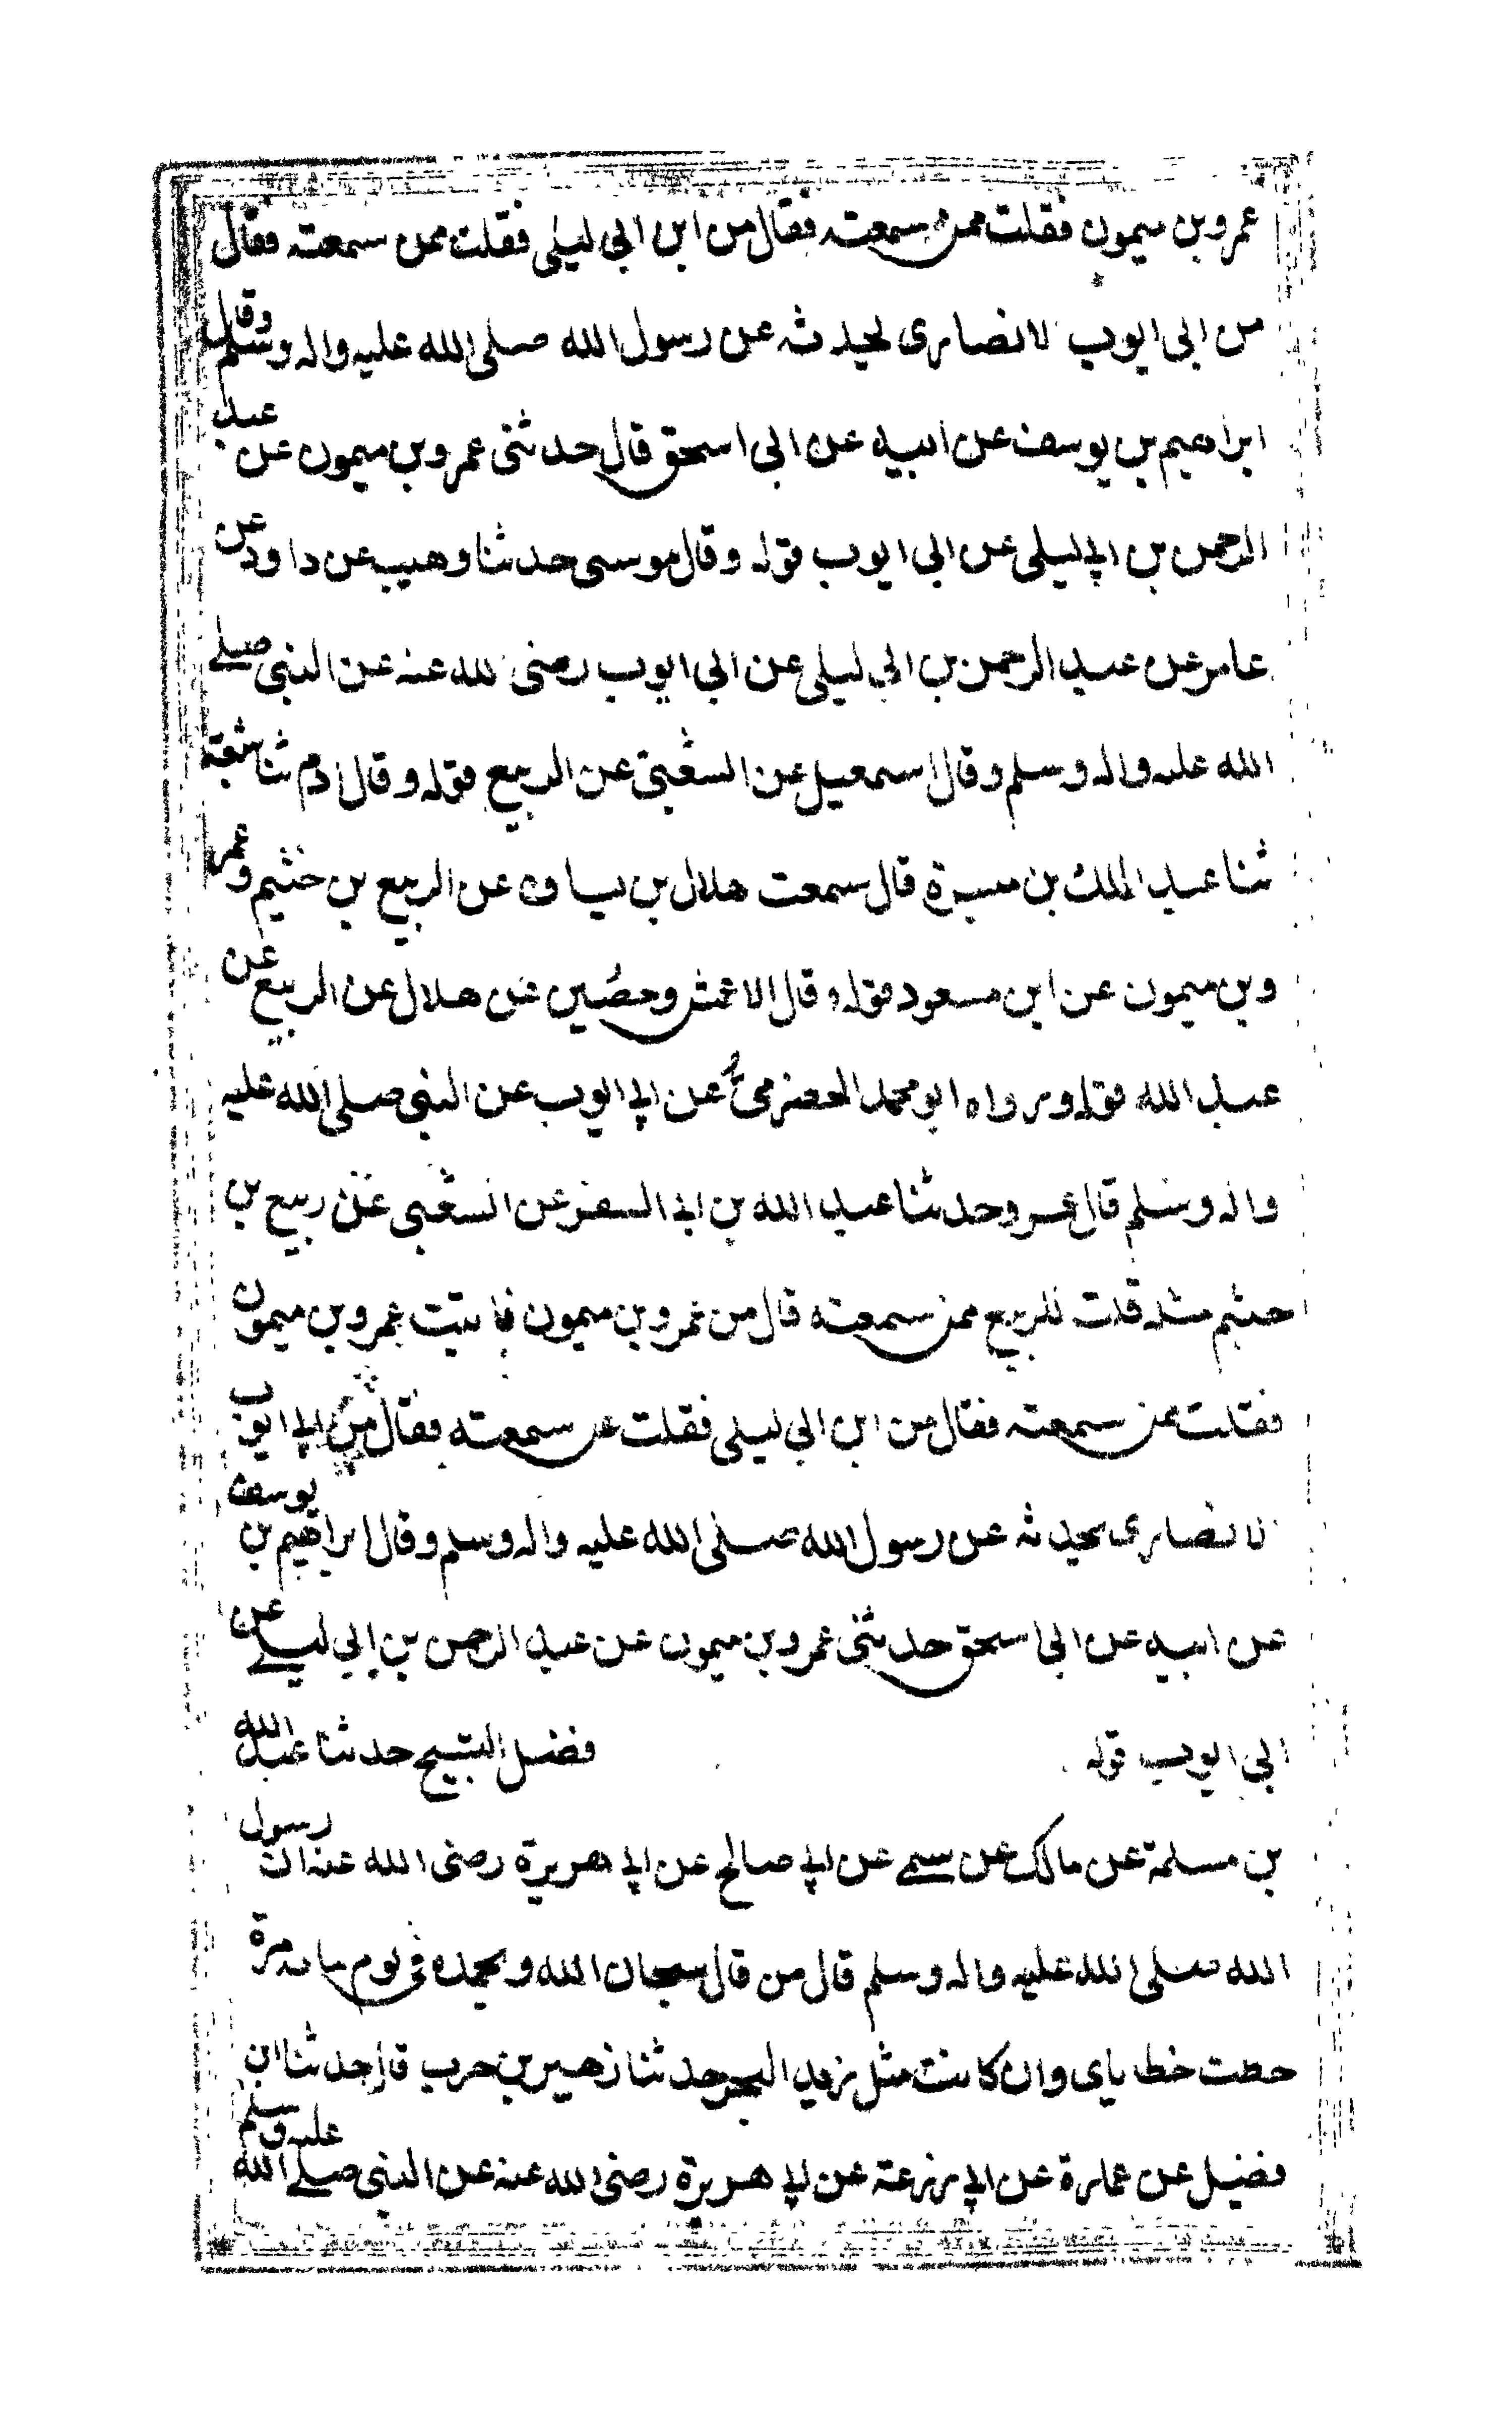 عمرو بن ميمون فقلت ممن سمعته فقال من ابن ابي ليلى فقلت ممن سمعته فقال
من ابي ايوب الانصارى يحدثه عن رسول الله صلى الله عليه واله وسلم وقال
ابراهيم بن يوسف عن ابيه عن ابي اسحق قال حدثنى عمرو بن ميمون عن عبد
الرحمن بن ابي ليلى عن ابي ايوب قوله وقال موسى حدثنا وهيب عن داود عن
عامر عن عبد الرحمن بن ابي ليلى عن ابي ايوب رضى الله عنه عن النبى صلى
الله عليه واله وسلم وقال اسمعيل عن الشعبى عن الربيع قوله وقال ادم ثنا شعبة
ثنا عبد الملك بن ميسرة قال سمعت هلال بن يساون عن الربيع بن خثيم وعمر
وبن ميمون عن ابن مسعود قوله وقال الاعمش وحصين عن هلال عن الربيع عن
عبد الله قوله ورواه ابو محمد الحضرمى عن ابي ايوب عن النبى صلى الله عليه
واله وسلم قال عمر وحدثنا عبد الله بن ابي السفر عن الشعبى عن ربيع بن
خثيم مثله قلت للربيع ممن سمعته قال من عمرو بن ميمون فاتيت عمرو بن ميمون
فقلت ممن سمعته فقال من ابن ابي ليلى فقلت عن سمعته فقال من ابي ايوب
الانصارى يحدثه عن رسول الله صلى الله عليه واله وسلم وقال ابراهيم بن يوسف
عن ابيه عن ابي اسحق حدثنى عمرو بن ميمون عن عبد الرحمن بن ابي ليلى عن
ابي ايوب قوله فضل التسبيح حدثنا عبد الله
بن مسلمة عن مالك عن سمى عن ابي صالح عن ابي هريرة رضى الله عنه ان رسول
الله صلى الله عليه واله وسلم قال من قال سبحان الله وبحمده فى يوم مائه مرة
حطت خطاياى وان كانت مثل زبد البحر حدثنا زهير بن حرب قال حدثنا ابن
فضيل عن عمارة عن ابي زرعة عن ابي هريرة رضى الله عنه عن النبى صلى الله عليه وسلم